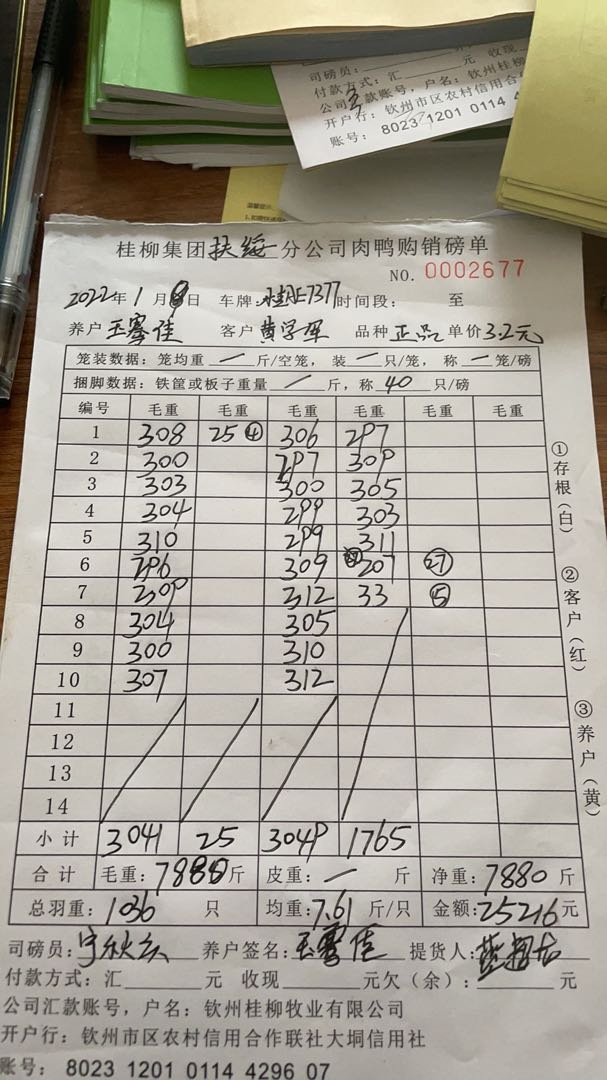 司磅员:
付款方式:汇 元 收现
公司汇款账号,户名:钦州桂柳
开户行:钦州市区农村信用合
账号:8023 1201 0114 4
桂柳集团扶绥分公司肉鸭购销磅单
NO. 0002677
2022年1月 日 车牌: E7377时间段: 至
养户 王骞佳 客户 黄学军 品种 正品 单价3.2元
笼装数据:笼均重 一 斤/空笼,装 一 只/笼,称 一 笼/磅
捆脚数据:铁筐或板子重量 一 斤,称 40 只/磅
编号 毛重 毛重 毛重 毛重 毛重 毛重
1 308 25 ④ 306 297
2 300 297 309
3 303 300 305
4 304 299 303
5 310 299 311
6 296 309 207 ㉗
7 309 312 33 ⑤
8 304 305
9 300 310
10 307 312
11
12
13
14
小计 3041 25 3049 1765
合计 毛重:7880斤 皮重:一 斤 净重:7880 斤
总羽重:1036 只 均重:7.61 斤/只 金额:25216元
司磅员: 养户签名:王骞佳 提货人:
付款方式:汇 元 收现 元欠(余): 元
公司汇款账号,户名:钦州桂柳牧业有限公司
开户行:钦州市区农村信用合作联社大垌信用社
账号:8023 1201 0114 4296 07
①存根(白)
②客户(红)
③养户(黄)